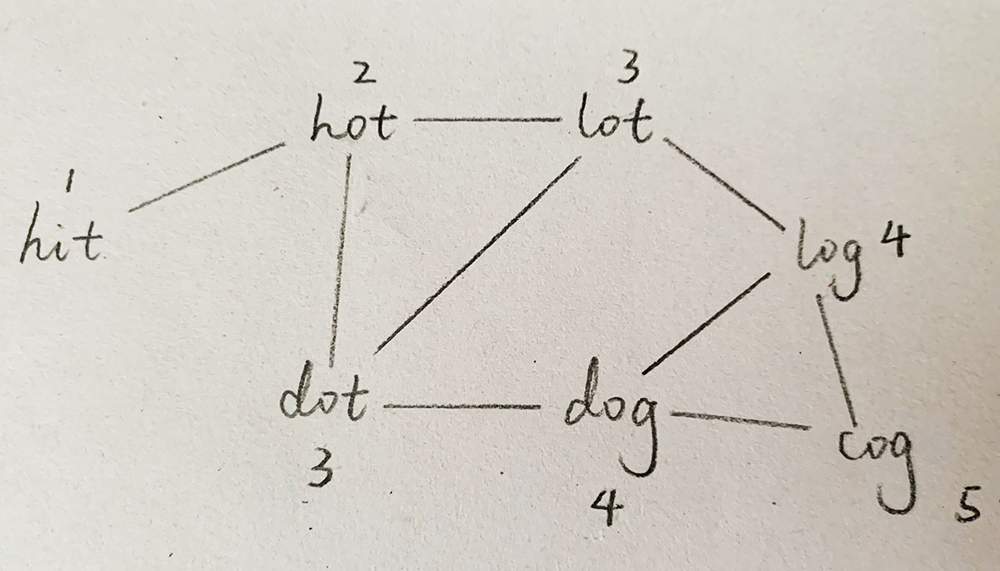 2 3
hot lot
1
hit
log 4
dot dog
cog
3
4 5